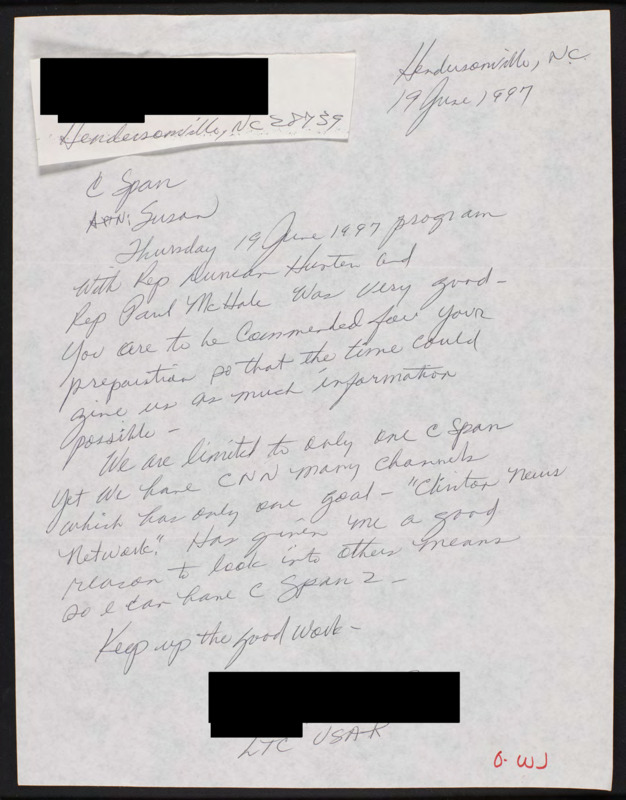 Hendersonville, NC 28739
Hendersonville, NC
19 June 1997
C Span
Attn: Susan
Thursday 19 June 1997 program
with Rep Duncan Hunter and
Rep Paul McHale was very good -
You are to be Commended for your
preparation so that the time could
give us as much information
possible -
We are limited to only one C Span
yet we have CNN many channels
which has only one goal - "Clinton News
Network." Has given me a good
reason to look into others means
so I can have C Span 2 -
Keep up the good work -
LTC USAR
O-WJ